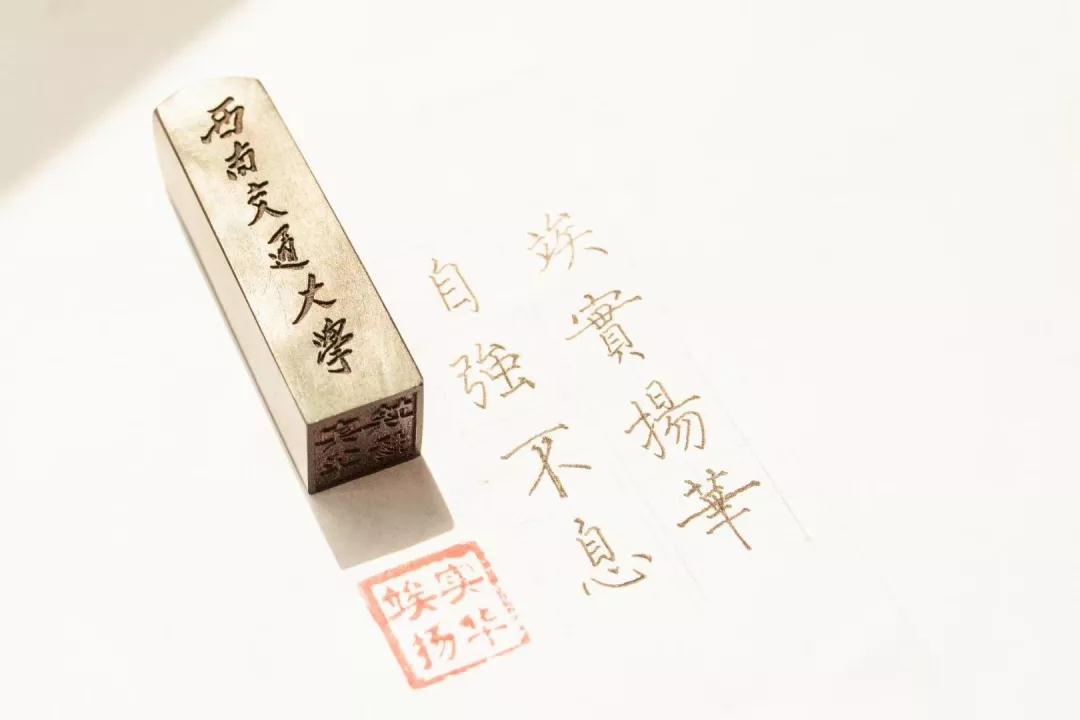 西南交通大學
竢實揚華
自強不息
竢实
扬华